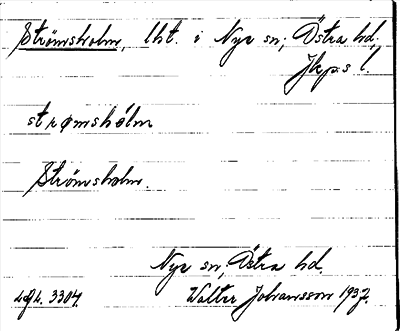 Strömsholm, lht. i Nye sn; Östra hd,
Jkp.s l.
strømshólm
Strömsholm.
Nye sn, Östra hd.
3304. Walter Johansson 1937.